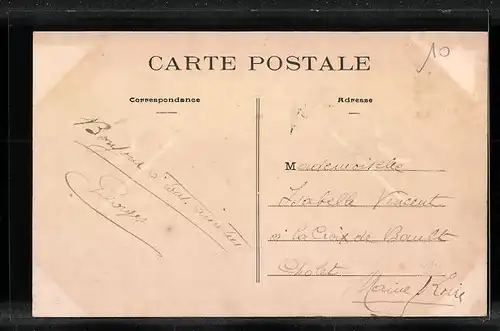 10
CARTE POSTALE
Correspondance
Adresse
Bonjour à tous
Georges
Mademoiselle
Isabelle Vincent
à la Croix de Bault
Cholet
Maine Loire